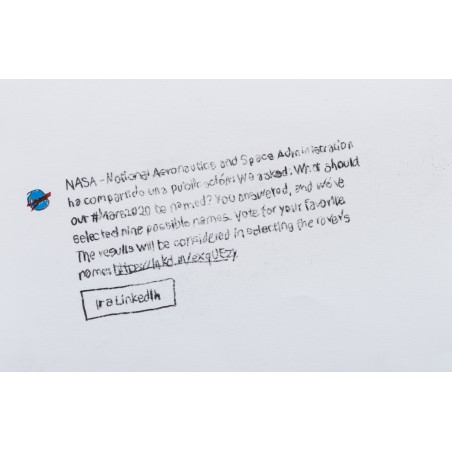 NASA - National Aeronautics and Space Administration
ha compartido una publicación: We asked: What should
our #Mars2020 be named? You answered, and we've
selected nine possible names. Vote for your favorite
The results will be considered in selecting the rover's
names https://lnkd.in/exqUEzy
Ir a LinkedIn